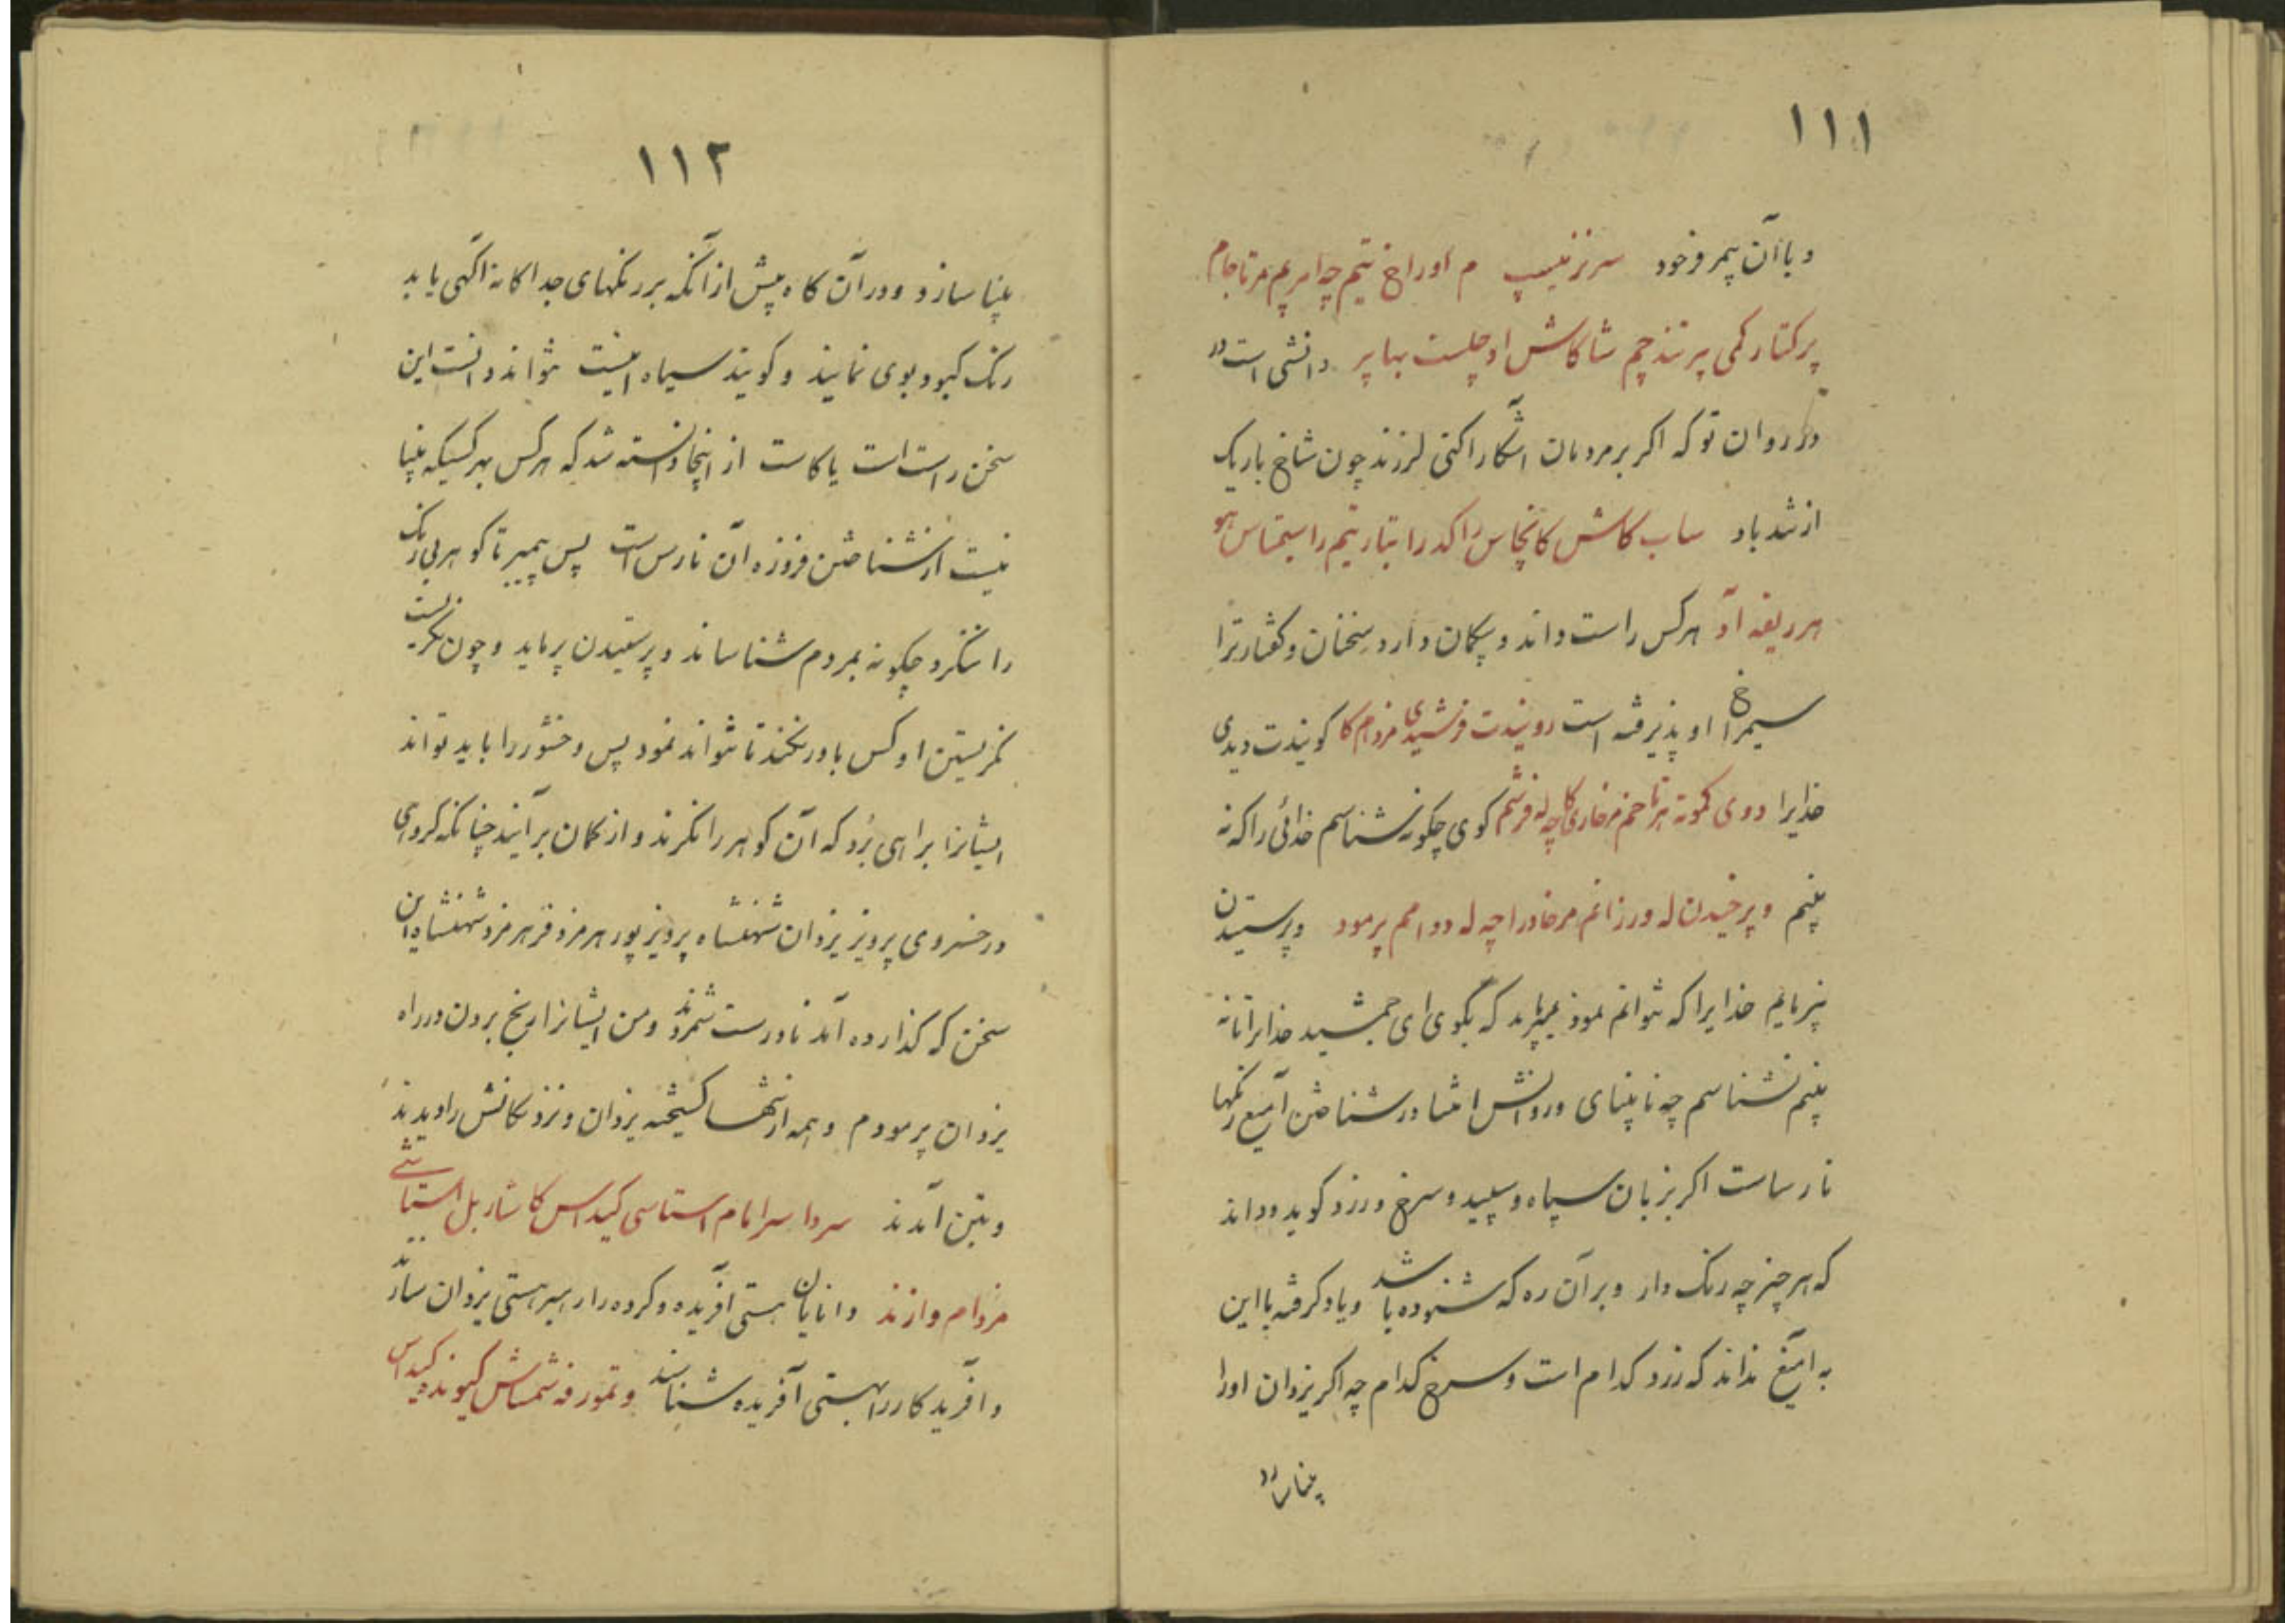 ۱۱۱
و با آن پیمر فرخود سرزنیپ م اوراخ تیم چه امریم مرتاجام
پرکتار کمی پرتند چم شاکاش اوچلست بهاپر دانشی است در
در روان تو که اکر بر مردمان آشکارا کنی لرزند چون شاخ باریک
از تند باد ساب کاش کانچاس راکد را تبار تیم راستماس هو
هرریفه آد هرکس راست داند و بیکمان دارد سخنان و کفتار ترا
سیمراخ او پذیرفته است رویندت فرشیدی مزدام کا کویندت دیدی
خدایرا دوی کمونه هرتاحم مرخاری کاچه له فرشم کوی چکونه نشناسم خدائی را که نه
بینم و پرخیدن له ورزانم مرخادرا چه له دوامم پرمود و پرستیدن
نپرمایم خدایرا که نتوانم نمود میپرماید که بکوی ای جمشید خدایرا تا نه
بینم نشناسم چه نابینای در دانش امتا در شناختن آمیغ رنکها
نارساست اکر بزبان سیاه و سپید و سرخ و زرد کوید و داند
که هر چیز چه رنک دارد و بر آن ره که شنوده باشد و یاد کرفته با این
به آمیغ نداند که زرد کدام است و سرخ کدام چه اکر یزدان اورا
بینا سازد
۱۱۲
بینا سازد و در آن کاه پیش از آنکه بر رنکهای جداکانه آکهی یابد
رنک کبود بوی نمایند و کویند سیاه اینست نتواند دانست این
سخن راست است یا کاست از اینجا دانسته شد که هر کس بهر کسیکه بینا
نیست از شناختن فروزه آن نارس است پس پیمبر تا کوهر بی رنک
را ننکرد چکونه بمردم شناساند و پرستیدن پرماید و چون نکریست
نمکریستن او کس باور نکند تا نتواند نمود پس وخشور را باید تواند
ایشانرا براهی برد که آن کوهر را نکرند و از کمان برآیند چنانکه کروهی
در خسروی پرویز یزدان شهنشاه پرویز پور هرمز و فر هرمز و شهنشاه این
سخن که کذارده آمد نادرست شمردند و من ایشانرا برنج بردن در راه
یزدان پرمودم و همه از تنها کسیخته یزدان و نزدیکانش را دیدند
و بتن آمدند سردا سرامام استاسی کیداس کاشار بل استاسی
مزدام وازند دانایان هستی آفریده و کرده را رهبر هستی یزدان سازند
و آفریدکار را بهستی آفریده شناسند و تمورفه شماش کیونده کیداس